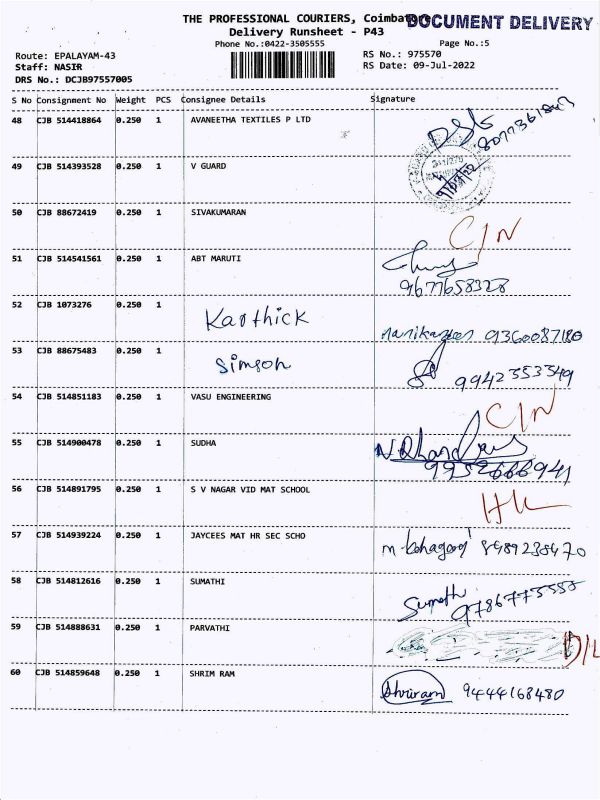 THE PROFESSIONAL COURIERS, Coimbatore
DOCUMENT DELIVERY
Delivery Runsheet - P43
Phone No.:0422-3505555
Page No.:5
Route: EPALAYAM-43
RS No.: 975570
Staff: NASIR
RS Date: 09-Jul-2022
DRS No.: DCJB97557005
S No Consignment No Weight PCS Consignee Details Signature
48 CJB 514418864 0.250 1 AVANEETHA TEXTILES P LTD
49 CJB 514393528 0.250 1 V GUARD
50 CJB 88672419 0.250 1 SIVAKUMARAN C/N
51 CJB 514541561 0.250 1 ABT MARUTI
9677658328
52 CJB 1073276 0.250 1 Karthick 9360087180
53 CJB 88675483 0.250 1 Simson 9942353349
54 CJB 514851183 0.250 1 VASU ENGINEERING C/N
55 CJB 514900478 0.250 1 SUDHA
9952666941
56 CJB 514891795 0.250 1 S V NAGAR VID MAT SCHOOL
57 CJB 514939224 0.250 1 JAYCEES MAT HR SEC SCHO 8489238470
58 CJB 514812616 0.250 1 SUMATHI Sumathi
59 CJB 514888631 0.250 1 PARVATHI D/L
60 CJB 514859648 0.250 1 SHRIM RAM Shriram 9444168480